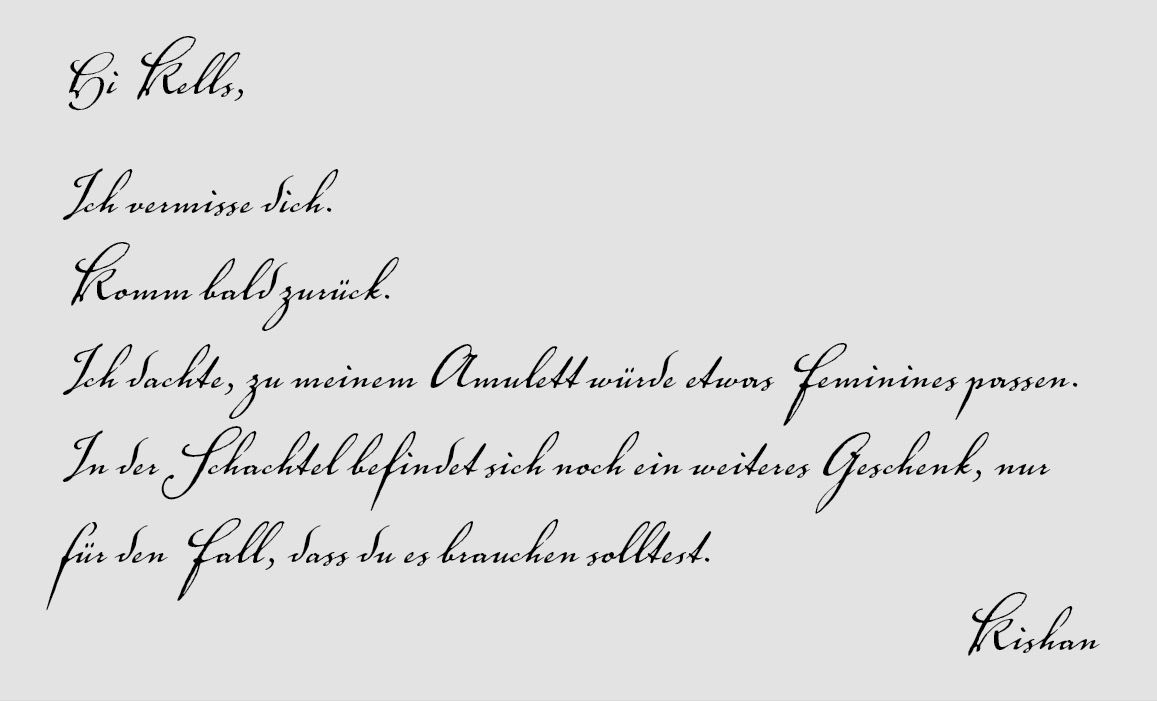 Hi Kells,
Ich vermisse dich.
Komm bald zurück.
Ich dachte, zu meinem Amulett würde etwas Feminines passen.
In der Schachtel befindet sich noch ein weiteres Geschenk, nur
für den Fall, dass du es brauchen solltest.
Kishan